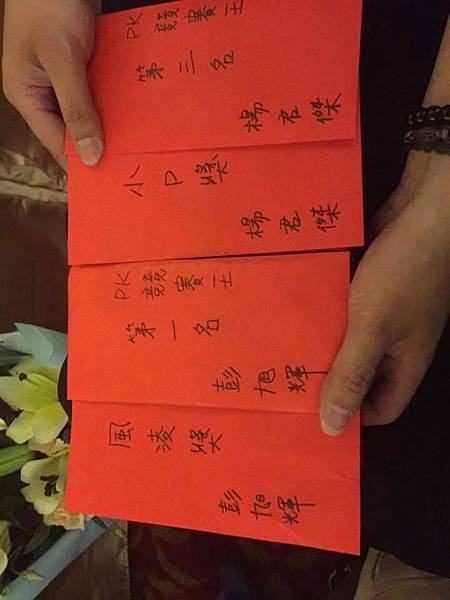 PK 競賽
第三名
楊君傑
小P獎
楊君傑
PK 競賽
第一名
彭旭輝
風凌獎
彭旭輝